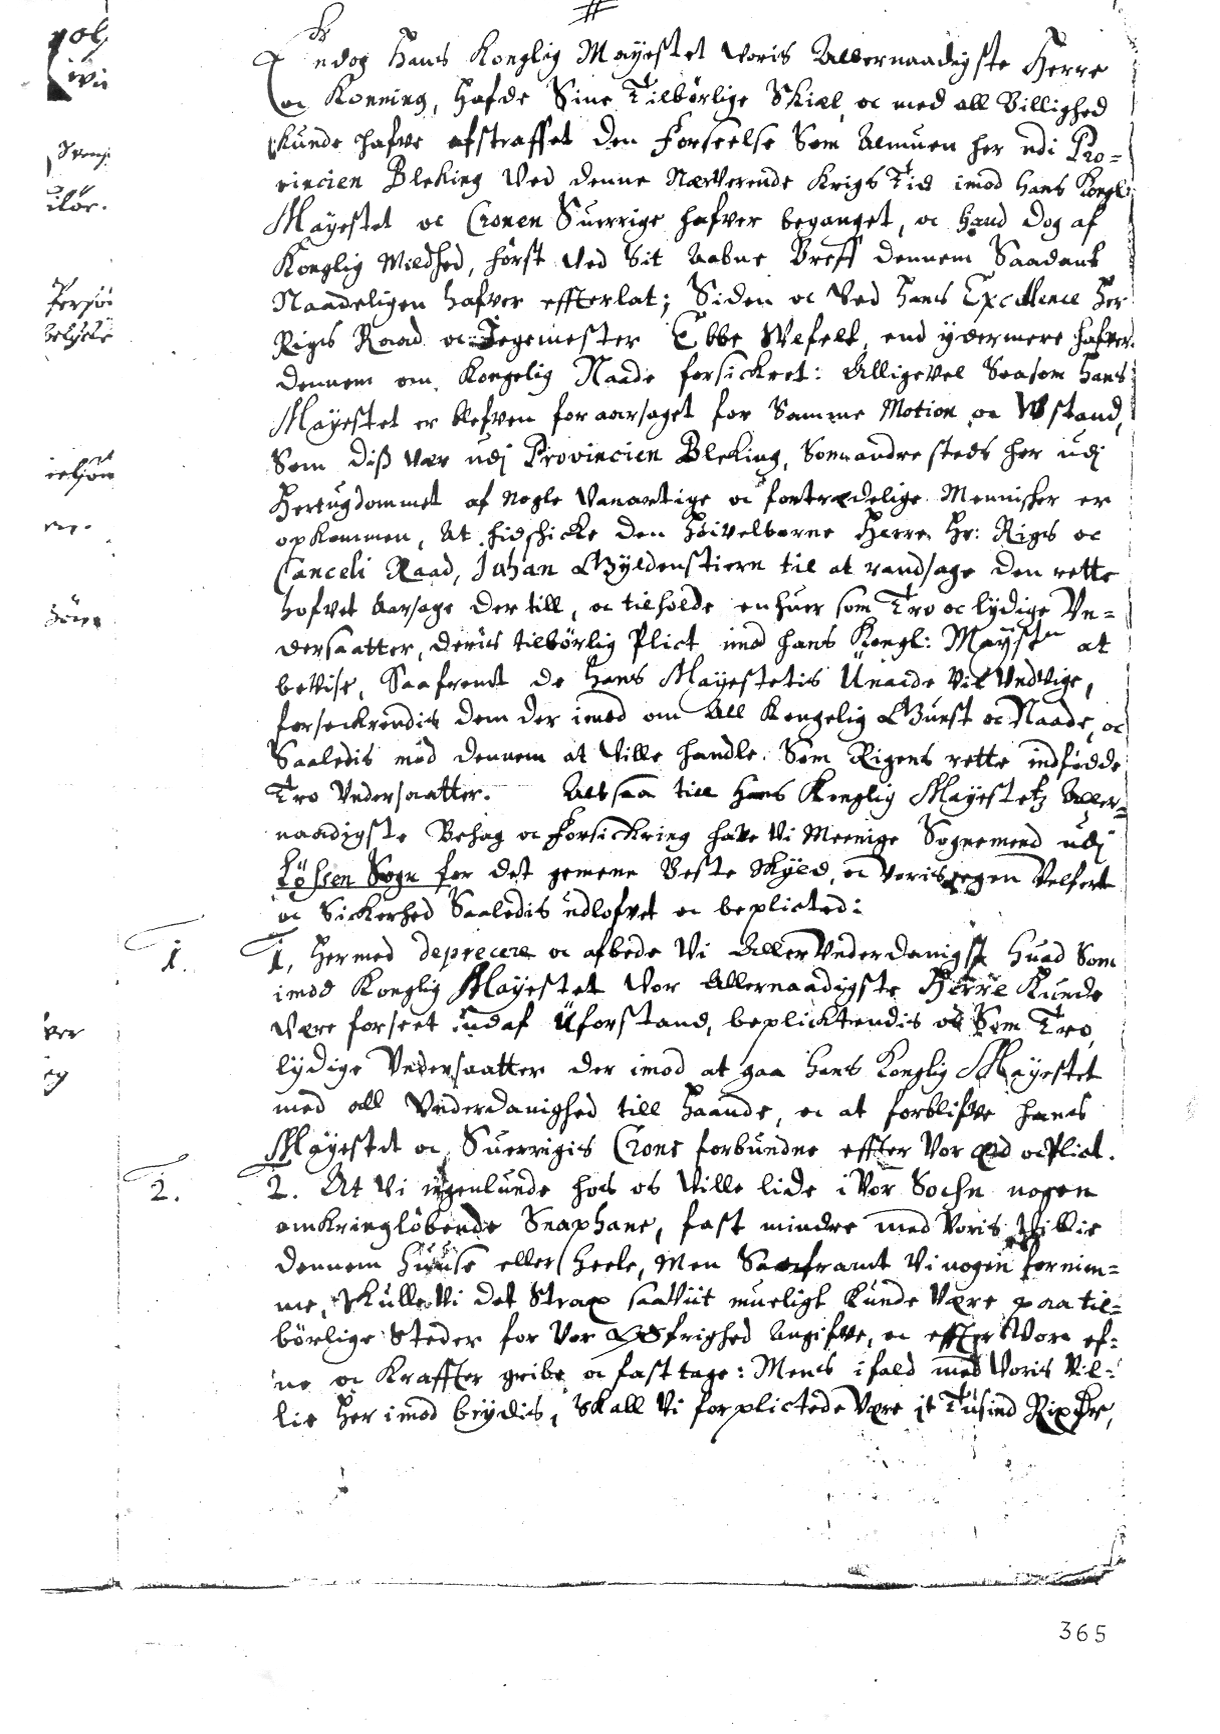 Endog Hans Konglig Mayestet voris Allernaadigste Herre
oc Konning, hafde Sine Tilbörlige Skiæl oc med all Billighed
kunde hafve afstraffet den Forseelse Som Almuen her udi Pro=
vincien Bleking Ved denne Nærverende Krigs Tid imod Hans Kongl:
Mayestet oc Cronen Suerrige hafver beganget, oc Hand dog af
Konglig Mildhed, först Ved Sit Aabne Breff dennem Saadant
Naadeligen hafver effterlat; Siden oc Ved Hans Excellence Her
Rigs Raad oc Jegemester Ebbe Ulfelt, end ydermere hafver
dennem om Kongelig Naade forsickret: Alligevel Saasom Hans
Mayestet er blefven foraarsaget for Samme Motion oc Upstand,
Som diss vær udj Provincien Bleking, Som andre steds her udj
Hertugdommet af nogle Vanartige oc fortrædelige Mennisker er
opkommen, At hidskicke den Höivelborne Herre, Hr: Rigs oc
Canceli Raad, Juhan Gÿldenstiern til at randsage den rette
hofvet Aarsage der till, oc tilholde enhuer som Tro oc lydige Un=
dersaatter, deris tilbörlig Plict imod hans Kongl: Mayst at
bevise, Saafremt de Hans Mayestetis Unaade vil Undvige,
forseckrendis dem der imod om All Kongelig Gunst oc Naade, oc
Saaledis mod dennem at Ville handle. Som Rigens rette indfödde
Tro Undersaatter. Altsaa till Hans Konglig Mayestetz Aller=
naadigste Behag oc Forsickring have Vi Meenige Sognemend udj
Lössen Sogn for det gemene Beste Skÿld, oc Voris egen Velfert
oc Sickerhed Saaledis udlofvet oc beplicted:
1. 1, Hermed deprecere oc afbede Vi Aller Underdanigst Huad Som
imod Konglig Mayestet Vor Allernaadigste Herre Kunde
Være forseet udaf Uforstand, beplicktendis os Som Tro
lydige Undersaatter der imod at gaa Hans Konglig Mayestet
med all Underdanighed till Haande, oc at forblifve hans
Mayestet oc Suerrigis Crone forbundne effter Vor Eed oc Plict.
2. 2. At Vi ingenlunde hos os Ville lide i Vor Sochn nogen
omkringlöbende Snaphane, fast mindre med Voris Villie
dennem Huuse eller Heele, Men Saafremt Vi nogen fornim=
me, Skulle Vi det Strax saaviit mueligt kunde Være paa til=
börlige Steder for Vor Öfrighed Angifve, oc effter Vore ef=
ne oc Kraffter gribe oc fast tage: Mens ifald med Voris Vil=
lie Her imod brÿdis, Skall Vi forplictede Være it Tusind Rixdlr,
365